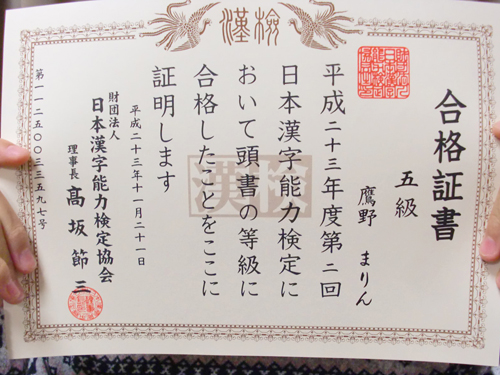 漢検
合格証書
五級
鷹野 まりん
平成二十三年度第二回
日本漢字能力検定に
おいて頭書の等級に
合格したことをここに
証明します
平成二十三年十一月二十一日
財団法人
日本漢字能力検定協会
理事長 髙坂節三
第一一二五〇〇三三五九七号
漢検